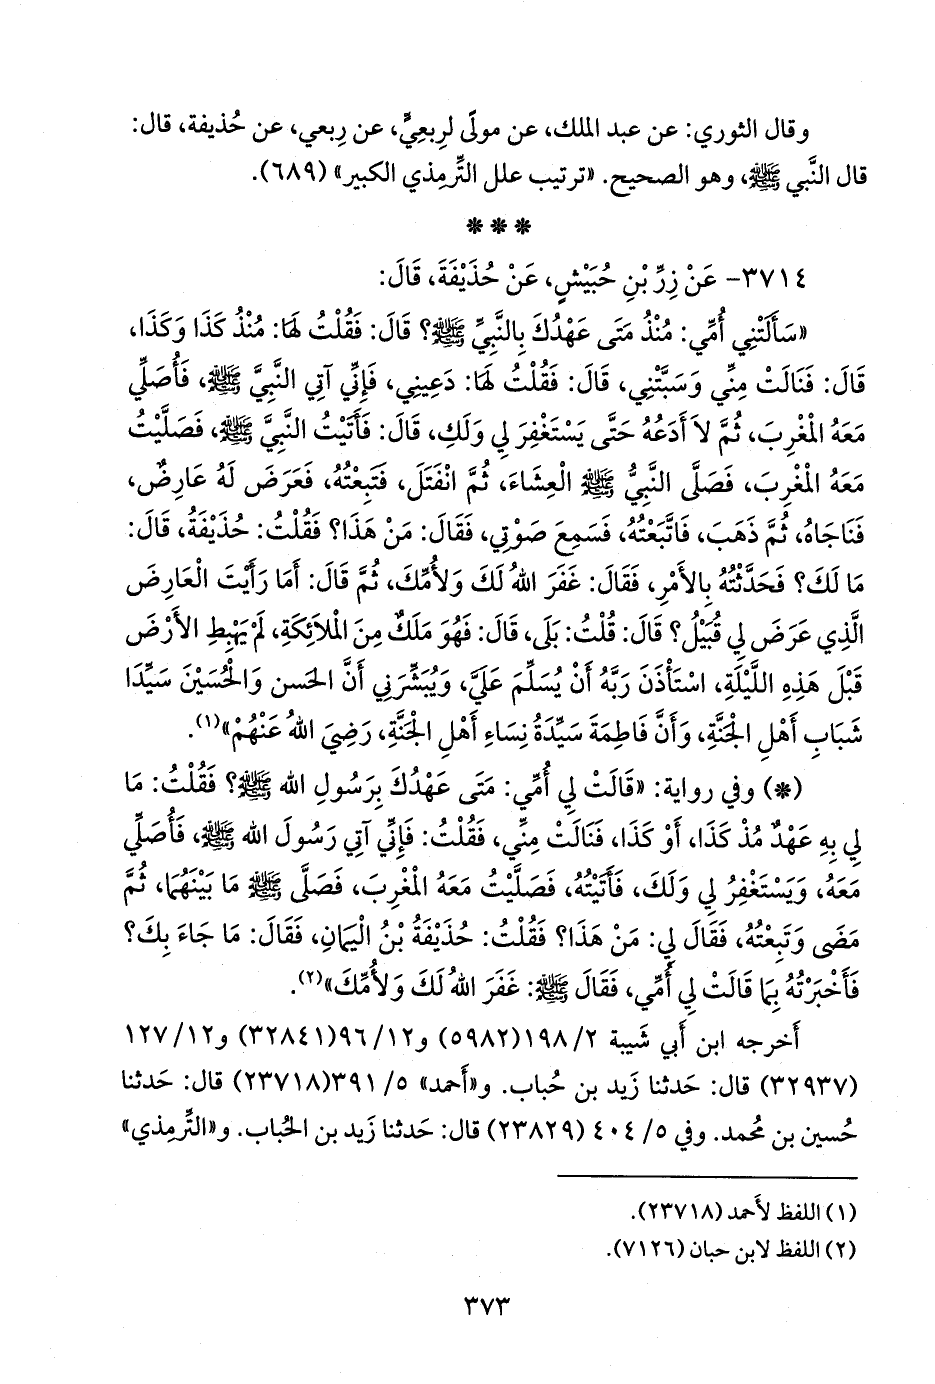 وقال الثوري: عن عبد الملك، عن مولًى لرِبعِيٍّ، عن رِبعي، عن حُذيفة، قال:
قال النَّبي ﷺ، وهو الصحيح. «ترتيب علل التِّرمِذي الكبير» (٦٨٩).
* * *
٣٧١٤- عَنْ زِرِّ بْنِ حُبَيْشٍ، عَنْ حُذَيْفَةَ، قَالَ:
«سَأَلَتْنِي أُمِّي: مُنْذُ مَتَى عَهْدُكَ بِالنَّبِيِّ ﷺ؟ قَالَ: فَقُلْتُ لَهَا: مُنْذُ كَذَا وَكَذَا،
قَالَ: فَنَالَتْ مِنِّي وَسَبَّتْنِي، قَالَ: فَقُلْتُ لَهَا: دَعِينِي، فَإِنِّي آتِي النَّبِيَّ ﷺ، فَأُصَلِّي
مَعَهُ المَغْرِبَ، ثُمَّ لاَ أَدَعُهُ حَتَّى يَسْتَغْفِرَ لِي وَلَكِ، قَالَ: فَأَتَيْتُ النَّبِيَّ ﷺ، فَصَلَّيْتُ
مَعَهُ المَغْرِبَ، فَصَلَّى النَّبِيُّ ﷺ الْعِشَاءَ، ثُمَّ انْفَتَلَ، فَتَبِعْتُهُ، فَعَرَضَ لَهُ عَارِضٌ،
فَنَاجَاهُ، ثُمَّ ذَهَبَ، فَاتَّبَعْتُهُ، فَسَمِعَ صَوْتِي، فَقَالَ: مَنْ هَذَا؟ فَقُلْتُ: حُذَيْفَةُ، قَالَ:
مَا لَكَ؟ فَحَدَّثْتُهُ بِالأَمْرِ، فَقَالَ: غَفَرَ اللهُ لَكَ وَلأُمِّكَ، ثُمَّ قَالَ: أَمَا رَأَيْتَ الْعَارِضَ
الَّذِي عَرَضَ لِي قُبَيْلُ؟ قَالَ: قُلْتُ: بَلَى، قَالَ: فَهُوَ مَلَكٌ مِنَ الْمَلاَئِكَةِ، لَمْ يَهْبِطِ الأَرْضَ
قَبْلَ هَذِهِ اللَّيْلَةِ، اسْتَأْذَنَ رَبَّهُ أَنْ يُسَلِّمَ عَلَيَّ، وَيُبَشِّرَنِي أَنَّ الحَسن وَالْحُسَيْنَ سَيِّدَا
شَبَابِ أَهْلِ الجَنَّةِ، وَأَنَّ فَاطِمَةَ سَيِّدَةُ نِسَاءِ أَهْلِ الجَنَّةِ، رَضِيَ اللهُ عَنْهُمْ»(١).
(*) وفي رواية: «قَالَتْ لِي أُمِّي: مَتَى عَهْدُكَ بِرَسُولِ الله ﷺ؟ فَقُلْتُ: مَا
لِي بِهِ عَهْدٌ مُذْ كَذَا، أَوْ كَذَا، فَنَالَتْ مِنِّي، فَقُلْتُ: فَإِنِّي آتِي رَسُولَ الله ﷺ، فَأُصَلِّي
مَعَهُ، وَيَسْتَغْفِرُ لِي وَلَكَ، فَأَتَيْتُهُ، فَصَلَّيْتُ مَعَهُ الْمَغْرِبَ، فَصَلَّى ﷺ مَا بَيْنَهُمَا، ثُمَّ
مَضَى وَتَبِعْتُهُ، فَقَالَ لِي: مَنْ هَذَا؟ فَقُلْتُ: حُذَيْفَةُ بْنُ الْيَمَانِ، فَقَالَ: مَا جَاءَ بِكَ؟
فَأَخْبَرْتُهُ بِمَا قَالَتْ لِي أُمِّي، فَقَالَ ﷺ: غَفَرَ اللهُ لَكَ وَلأُمِّكَ»(٢).
أَخرجه ابن أَبي شَيبة ٢/ ١٩٨(٥٩٨٢) و١٢/ ٩٦(٣٢٨٤١) و١٢/ ١٢٧
(٣٢٩٣٧) قال: حَدثنا زَيد بن حُباب. و«أَحمد» ٥/ ٣٩١(٢٣٧١٨) قال: حَدثنا
حُسين بن مُحمد. وفي ٥/ ٤٠٤ (٢٣٨٢٩) قال: حَدثنا زَيد بن الحُباب. و«التِّرمِذي»
(١) اللفظ لأَحمد (٢٣٧١٨).
(٢) اللفظ لابن حبان (٧١٢٦).
٣٧٣